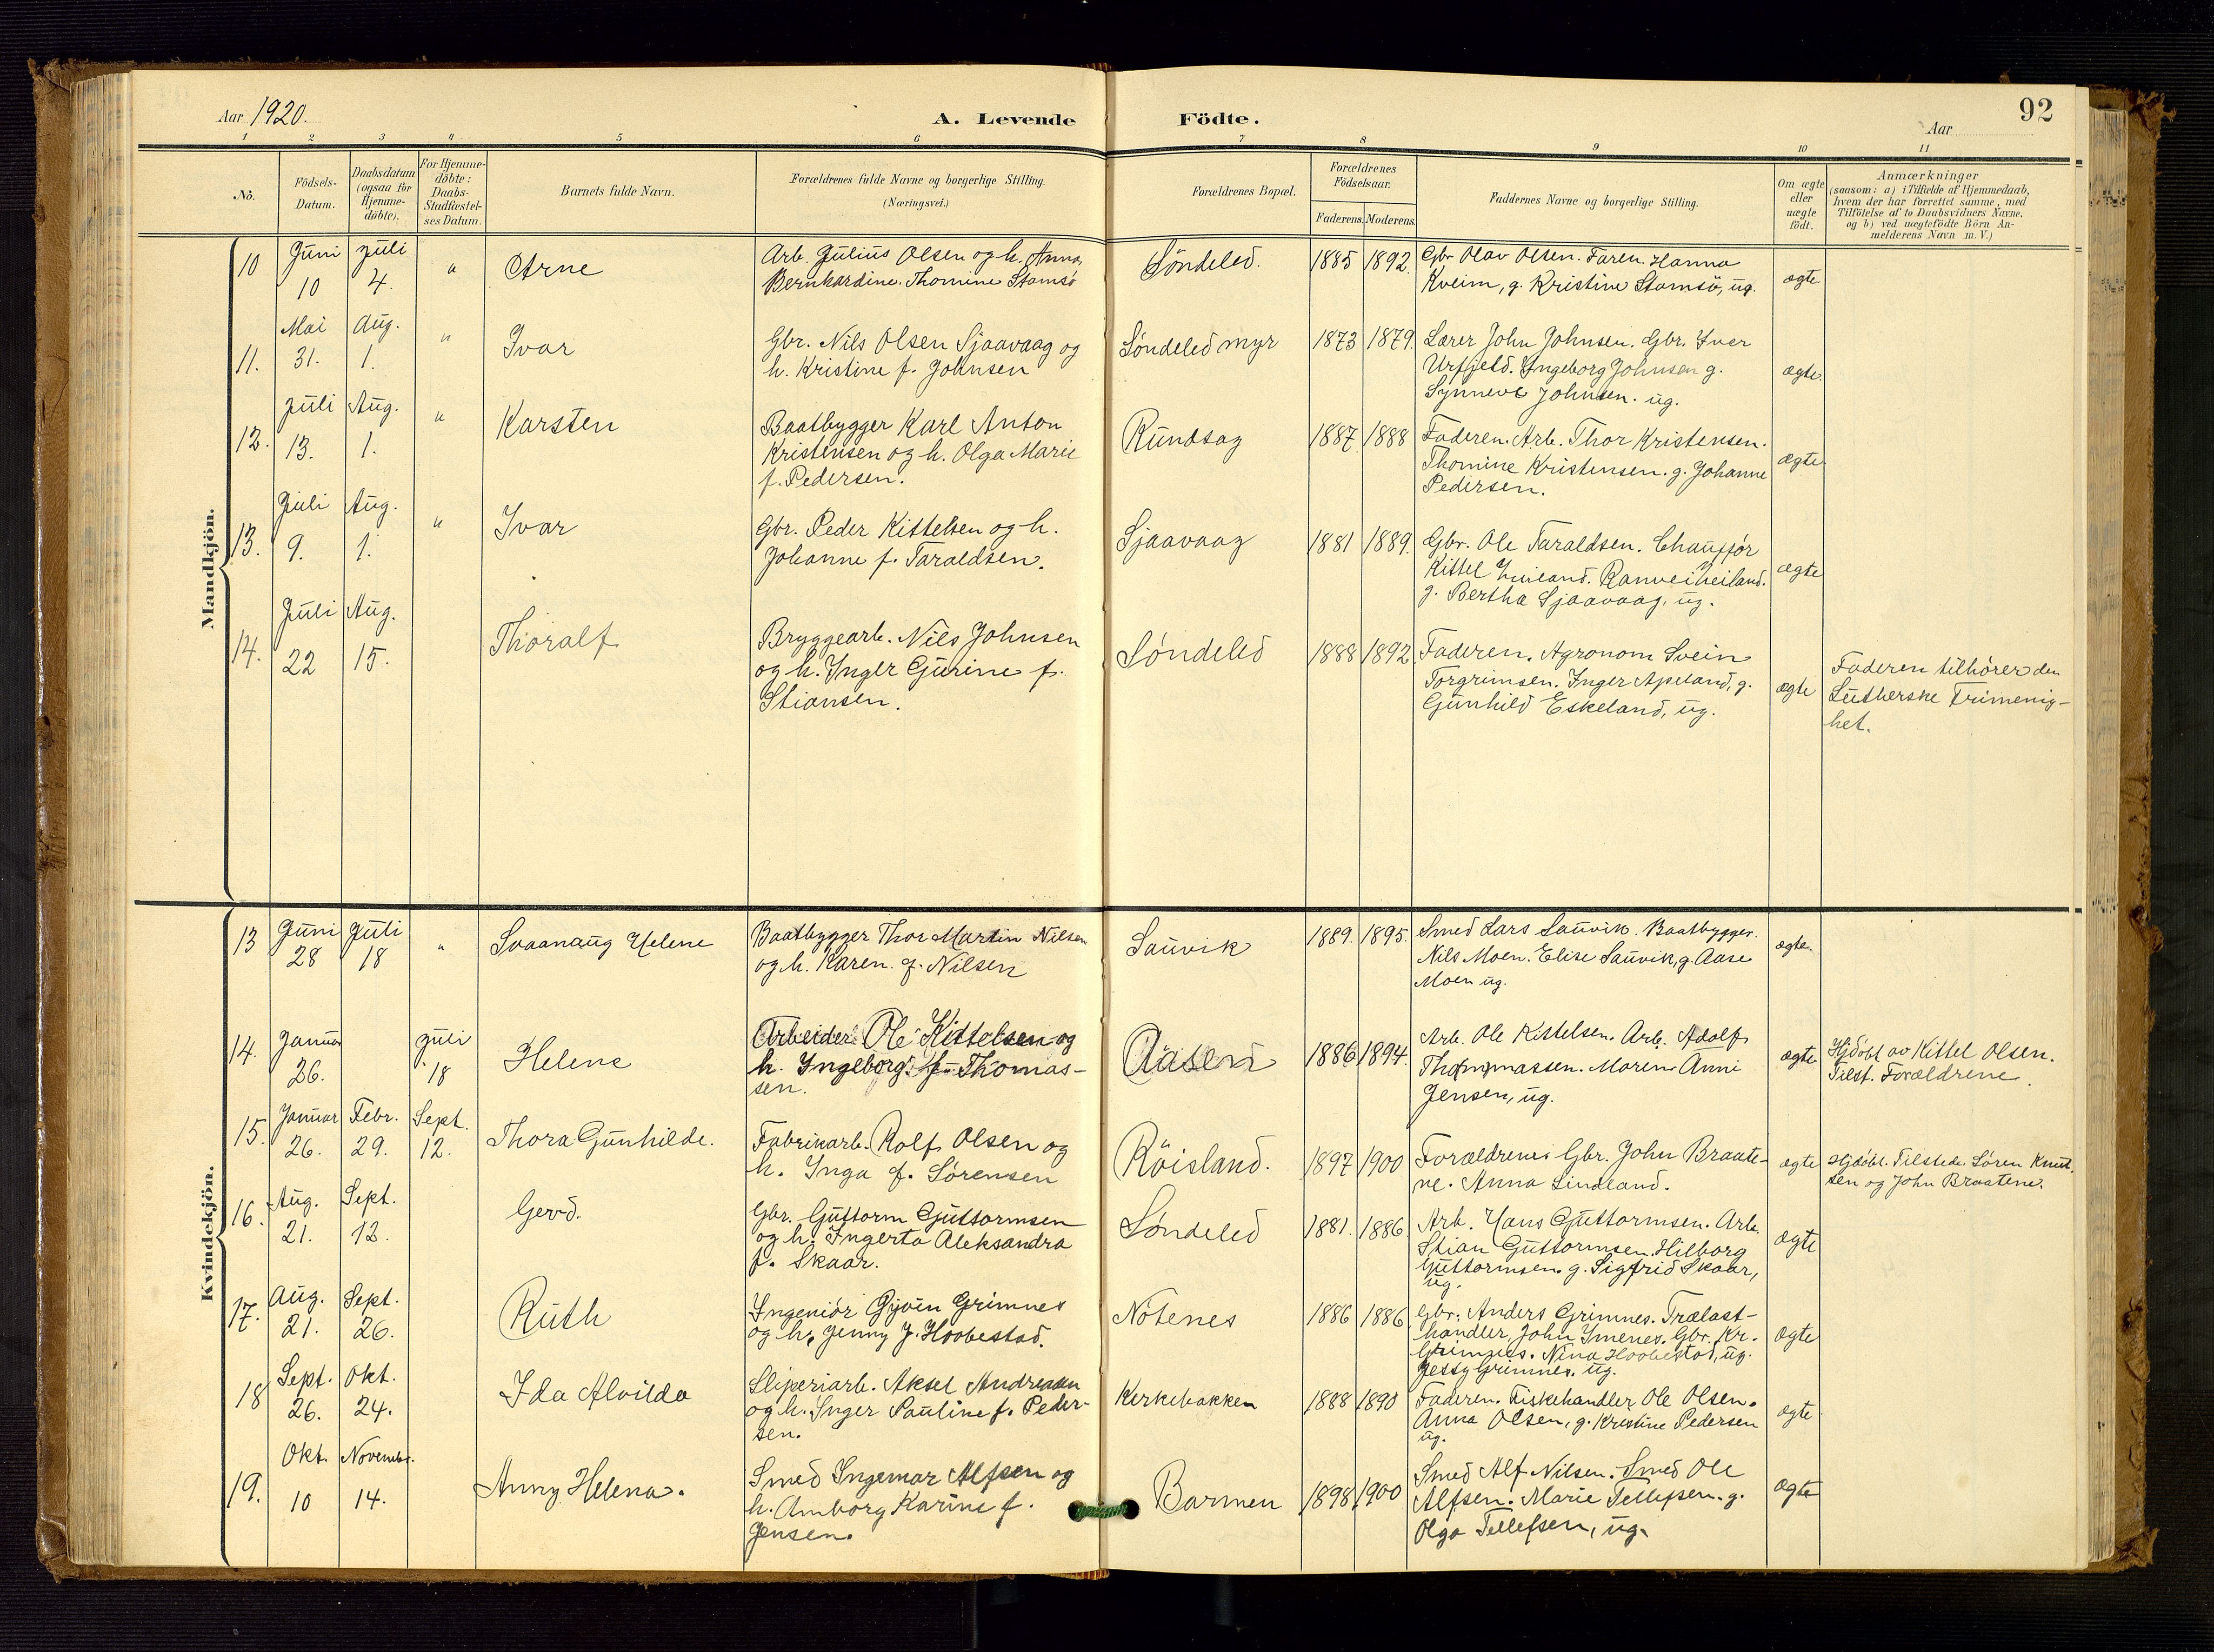 Aar 1920.
A. Levende Födte.
Aar
92
1 2 3 4 5 6 7 8 9 10 11
No.
Födsels-Datum.
Daabsdatum (ogsaa for Hjemme-döbte).
For Hjemme-döbte: Daabs-Stadfæstel-ses Datum.
Barnets fulde Navn.
Forældrenes fulde Navne og borgerlige Stilling.
(Næringsvei.)
Forældrenes Bopæl.
Forældrenes Födselsaar.
Faderens. Moderens.
Faddernes Navne og borgerlige Stilling.
Om ægte eller uægte födt.
Anmærkninger
(saasom: a) i Tilfælde af Hjemmedaab,
hvem der har forrettet samme, med
Tilföielse af to Daabsvidners Navne.
og b) ved uægtefödte Börn An-
melderens Navn m. V.)
Mandkjön.
10 Juni 10 Juli 4. " Arne
Arb. Julius Olsen og h. Anna
Bernhardine Thomine Stamsö
Söndeled. 1885 1892.
Gbr. Olav Olsen. Faren. Hanna
Kveim, g. Kristine Stamsö, ug.
ægte
11. Mai 31. Aug. 1. " Ivar
Gbr. Nils Olsen Sjaavaag og
h. Kristine f. Johnsen
Söndeled myr 1873 1879.
Lærer John Johnsen. Gbr. Iver
Urfjeld. Ingeborg Johnsen g.
Synneve Johnsen. ug.
ægte.
12. Juli 13. Aug. 1. " Karsten
Baatbygger Karl Anton
Kristensen og h. Olga Marie
f. Pedersen.
Rundsag 1887 1888
Faderen. Arb. Thor Kristensen.
Thomine Kristensen. g. Johanne
Pedersen.
ægte
13. Juli 9. Aug. 1. " Ivar
Gbr. Peder Kittelsen og h.
Johanne f. Taraldsen.
Sjaavaag 1881 1889.
Gbr. Ole Taraldsen. Chauffør
Kittel Ranvei Heiland.
g. Bertha Sjaavaag, ug.
ægte
14. Juli 22 Aug. 15. Thoralf
Bryggearb. Nils Johnsen
og h. Inger Gurine f.
Stiansen.
Söndeled 1888 1892
Faderen. Agronom Svein
Torgrimsen. Inger Apeland, g.
Gunhild Eskeland, ug.
ægte
Faderen tilhører den
Lutherske Frimenig-
het.
Kvindekjön.
13 Juni 28 Juli 18 " Svaanaug Helene
Baatbygger Thor Martin Nilsen
og h. Karen f. Nilsen
Sauvik 1889. 1895.
Smed Lars Sauvik. Baatbygger
Nils Moen. Elise Sauvik, g. Aase
Moen ug.
ægte.
14. Januar 26. Juli 18 Helene
Arbeider Ole Kittelsen og
h. Ingeborg f. Thomas-
sen.
Aasen 1886 1894.
Arb. Ole Kittelsen. Arb. Adolf
Thommassen. Maren Anni
Jensen, ug.
ægte
Hjdöbt av Kittel Olsen.
Tilst. Forældrene.
15. Januar 26. Febr. 29. Sept. 12. Thora Gunhilde.
Fabrikarb. Rolf Olsen og
h. Inga f. Sørensen
Röisland. 1897 1900
Forældrene. Gbr. John Braate-
ne. Anna Lindland.
ægte
Hjdöbt. Tilstede. Søren Knut-
sen og John Braatene.
16. Aug. 21. Sept. 12. Gerd.
Gbr. Guttorm Guttormsen
og h. Ingerta Aleksandra
f. Skaar.
Söndeled 1881. 1886
Arb. Hans Guttormsen. Arb.
Stian Guttormsen. Hilborg
Guttormsen. g. Sigfrid Skaar,
ug.
ægte
17. Aug. 21. Sept. 26. Ruth
Ingeniør Gjøen Grimnes
og h. Jenny f. Hoobestad.
Notenes 1886 1886
Gbr. Anders Grimnes. Trælast-
handler John Ymenes. Gbr. Kr.
Grimnes. Nina Hoobestad, ug.
Jessy Grimnes. ug.
ægte
18 Sept. 26. Okt. 24. Ida Alvilda
Sliperiarb. Aksel Andreasen
og h. Inger Pauline f. Peder-
sen.
Kerkebakken 1888 1890
Faderen. Fiskehandler Ole Olsen.
Anna Olsen, g. Kristine Pedersen
ug.
ægte
19. Okt. 10 Novembr. 14. Anny Helena.
Smed Ingemar Alfsen og
h. Amborg Karine f.
Jensen.
Barmen 1898 1900
Smed Alf Nilsen. Smed Ole
Alfsen. Marie Tellefsen. g.
Olga Tellefsen, ug.
ægte